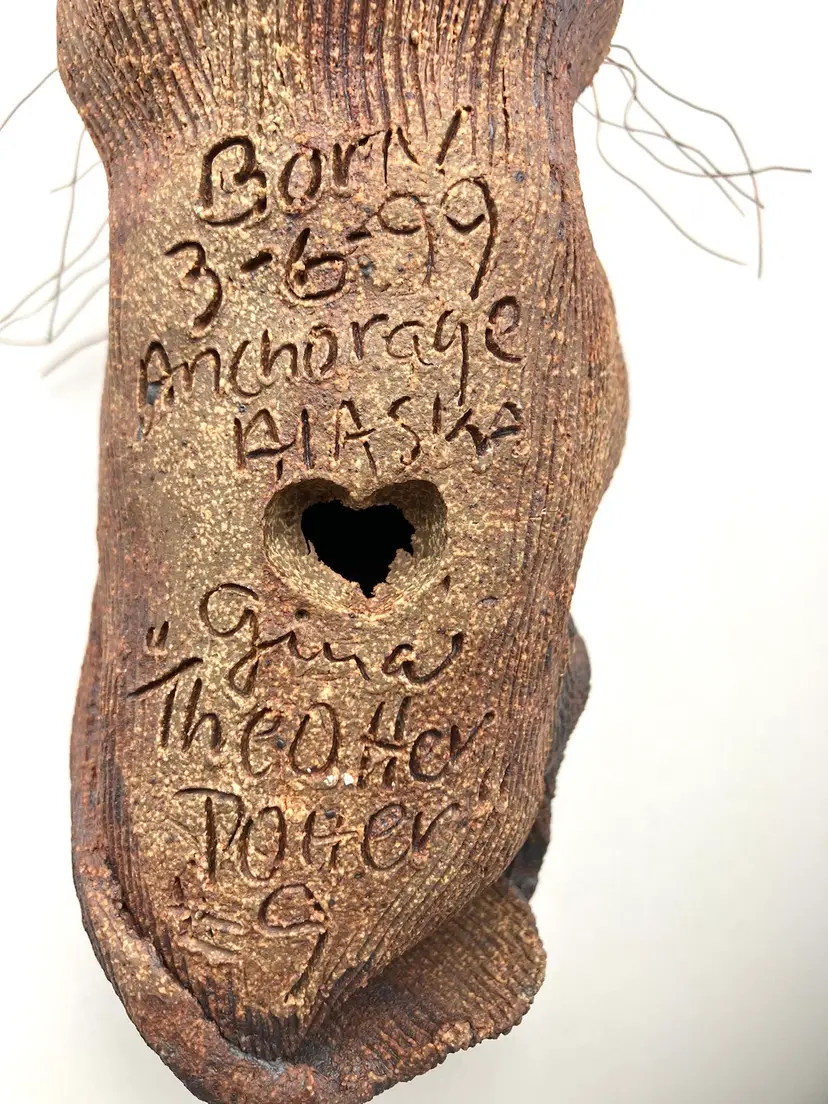 Born
3-6-99
Anchorage
AlASKA
Gina
"TheOtter
Potter
#9